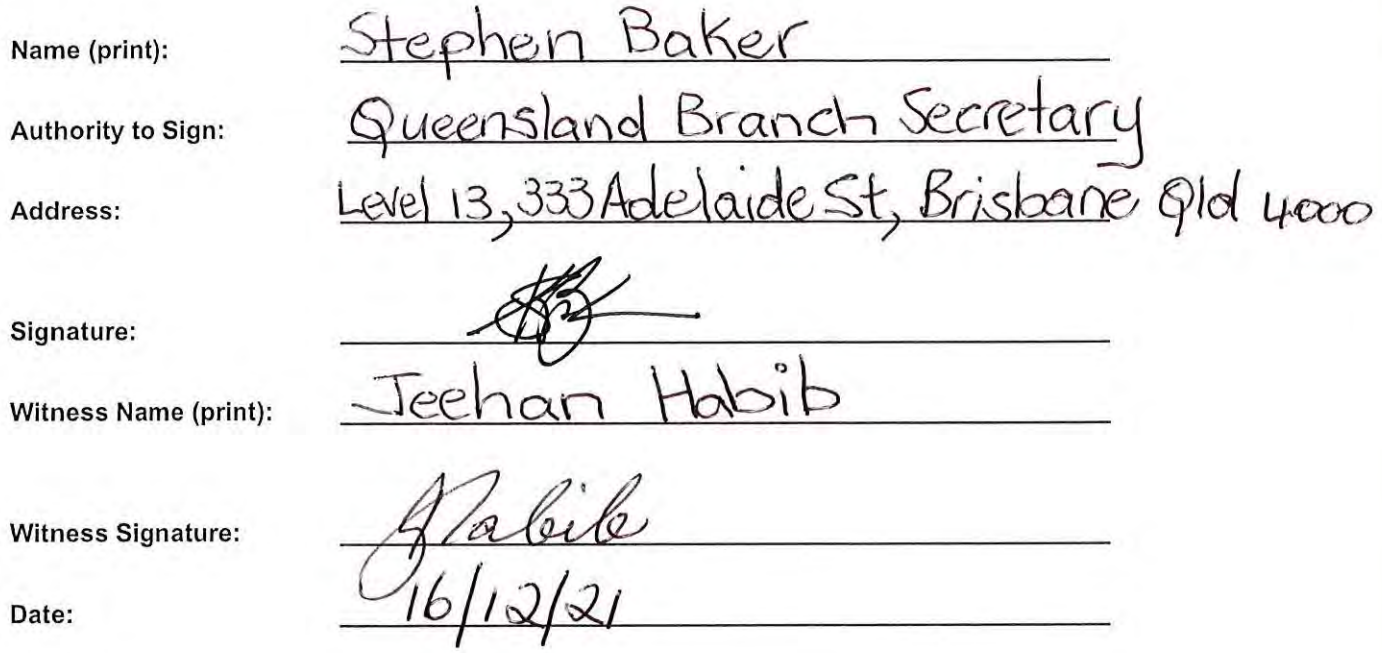 Name (print): Stephen Baker
Authority to Sign: Queensland Branch Secretary
Address: Level 13, 333 Adelaide St, Brisbane Qld 4000
Signature:
Witness Name (print): Jeehan Habib
Witness Signature: JHabib
Date: 16/12/21